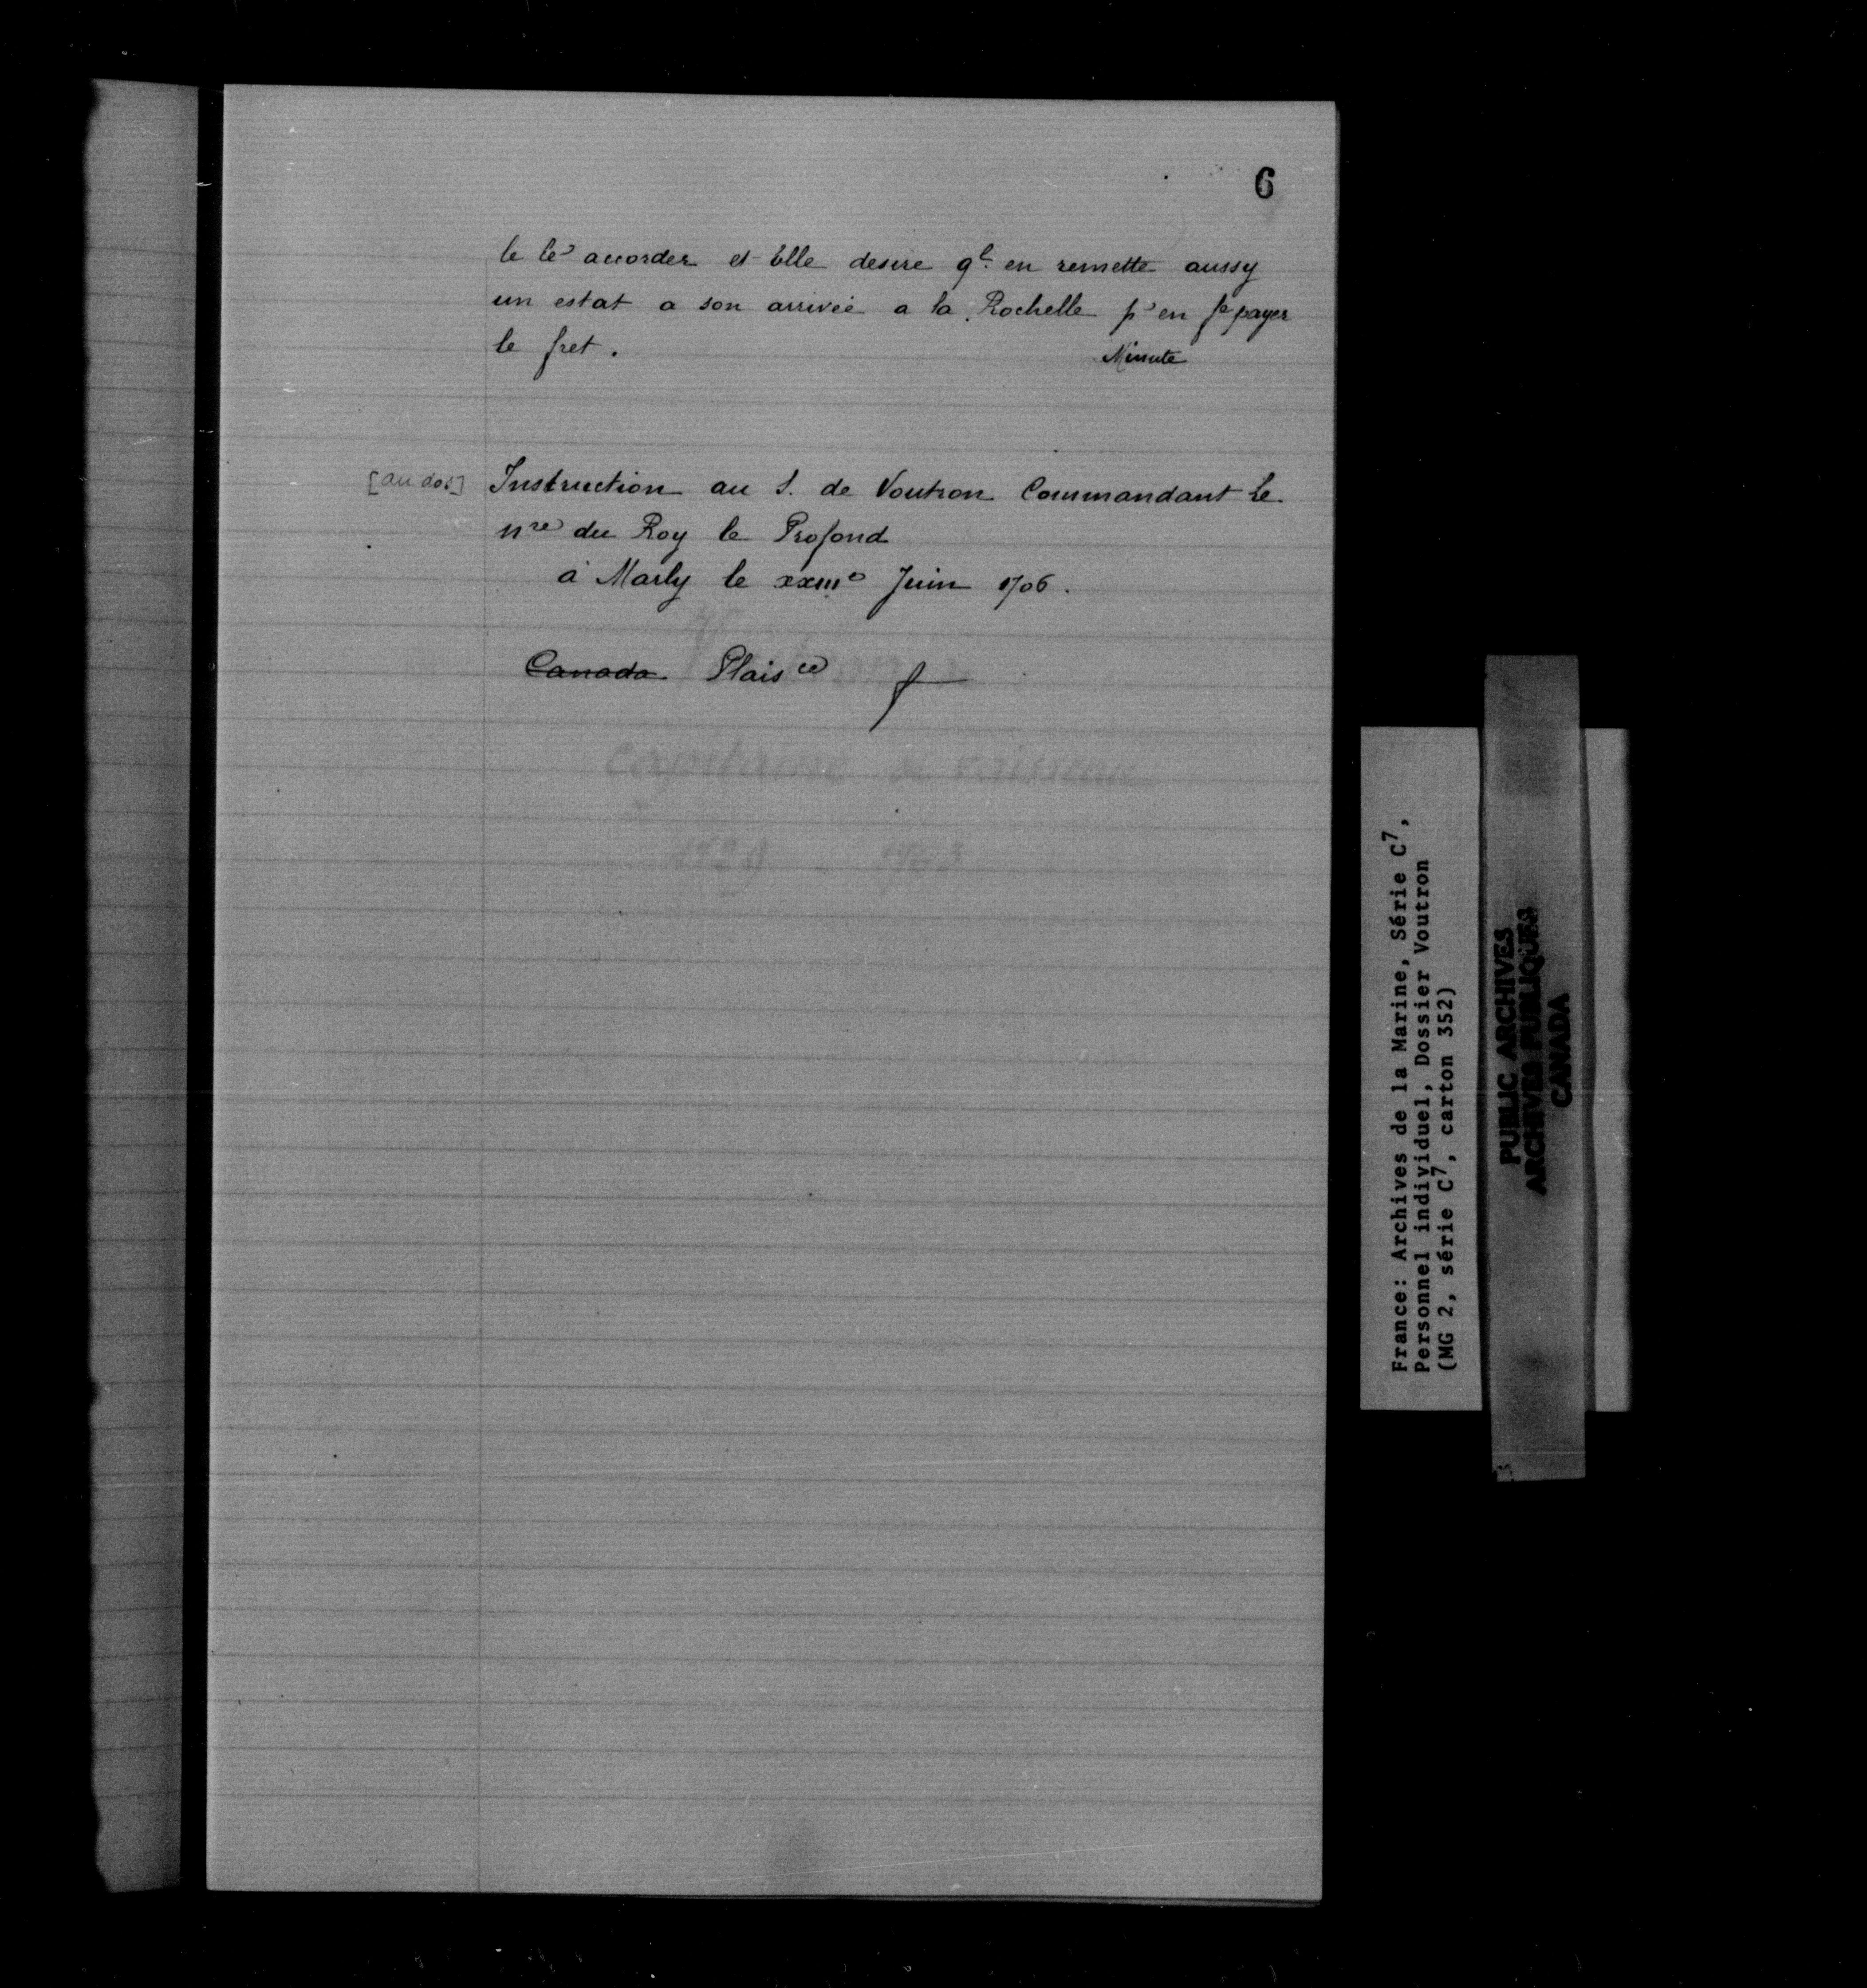 6
le le accorder et Elle desire ql. en remette aussy
un estat a son arrivée a la Rochelle pr en fe payer
le fret.
Minute
[au dos] Instruction au S. de Voutron Commandant Le
nre du Roy le Profond
à Marly le xxiiie Juin 1706.
Canada Plaisce
Capitaine de vaisseau
France: Archives de la Marine, Série C7,
Personnel individuel, Dossier Voutron
(MG 2, série C7, carton 352)
PUBLIC ARCHIVES
ARCHIVES PUBLIQUES
CANADA